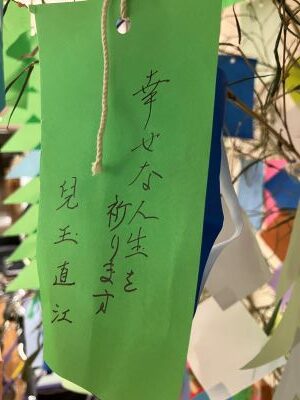 幸せな人生を
祈ります
兒玉直江